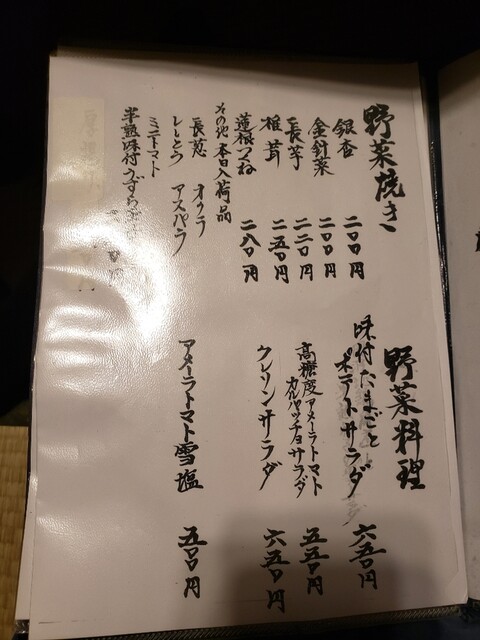 野菜焼き
銀杏 二〇〇円
金針菜 二〇〇円
長芋 二二〇円
椎茸 二五〇円
蓮根つくね 二八〇円
その他 本日入荷品
長葱 オクラ
ししとう アスパラ
ミニトマト
半熟味付うずら
野菜料理
味付たまごと
ポテトサラダ 六五〇円
高糖度アメーラトマト
カルパッチョサラダ 五五〇円
クレソンサラダ 六五〇円
アメーラトマト雪塩 五〇〇円